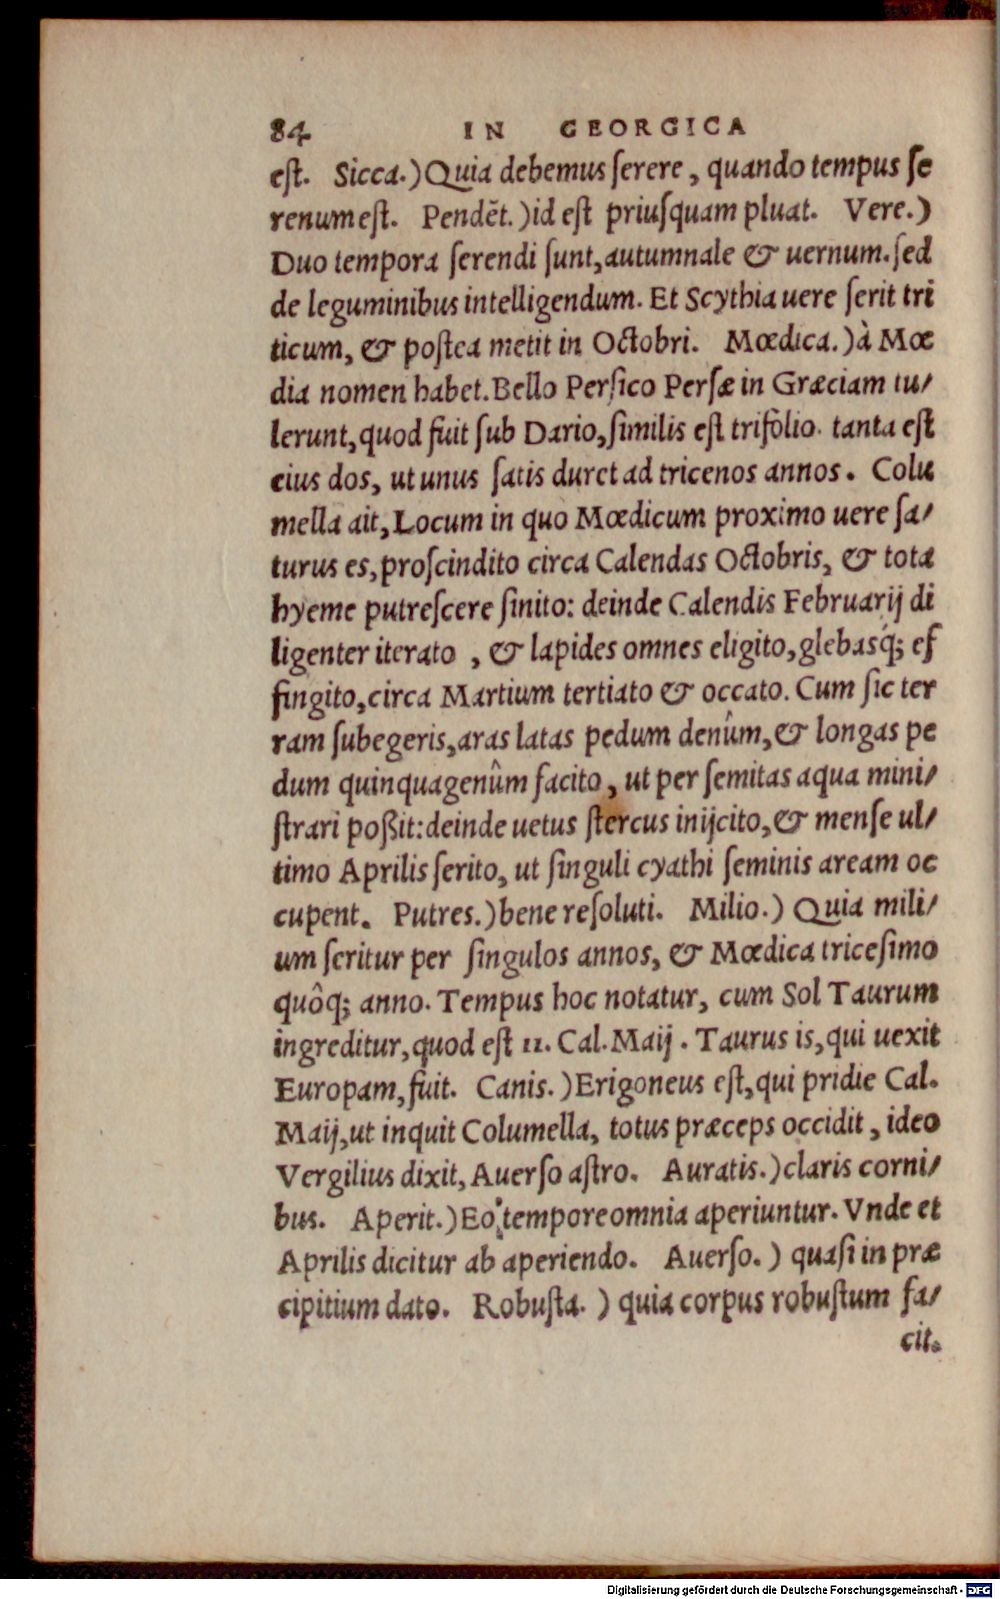 84 IN GEORGICA
est. Sicca.) Quia debemus serere, quando tempus se
renum est. Pendēt.) id est priusquam pluat. Vere.)
Duo tempora serendi sunt, autumnale & uernum. sed
de leguminibus intelligendum. Et Scythia uere serit tri
ticum, & postea metit in Octobri. Mœdica.) à Mœ
dia nomen habet. Bello Persico Persæ in Græciam tu/
lerunt, quod fuit sub Dario, similis est trifolio. tanta est
eius dos, ut unus satis duret ad tricenos annos. Colu
mella ait, Locum in quo Mœdicum proximo uere sa/
turus es, proscindito circa Calendas Octobris, & tota
hyeme putrescere sinito: deinde Calendis Februarij di
ligenter iterato , & lapides omnes eligito, glebasq́; ef
fingito, circa Martium tertiato & occato. Cum sic ter
ram subegeris, aras latas pedum denûm, & longas pe
dum quinquagenûm facito, ut per semitas aqua mini/
strari poßit: deinde uetus stercus inijcito, & mense ul/
timo Aprilis serito, ut singuli cyathi seminis aream oc
cupent. Putres.) bene resoluti. Milio.) Quia mili/
um seritur per singulos annos, & Mœdica tricesimo
quôq; anno. Tempus hoc notatur, cum Sol Taurum
ingreditur, quod est 11. Cal. Maij. Taurus is, qui uexit
Europam, fuit. Canis.) Erigoneus est, qui pridie Cal.
Maij, ut inquit Columella, totus præceps occidit, ideo
Vergilius dixit, Auerso astro. Auratis.) claris corni/
bus. Aperit.) Eo tempore omnia aperiuntur. Vnde et
Aprilis dicitur ab aperiendo. Auerso.) quasi in præ
cipitium dato. Robusta.) quia corpus robustum fa/
cit.
Digitalisierung gefördert durch die Deutsche Forschungsgemeinschaft - DFG